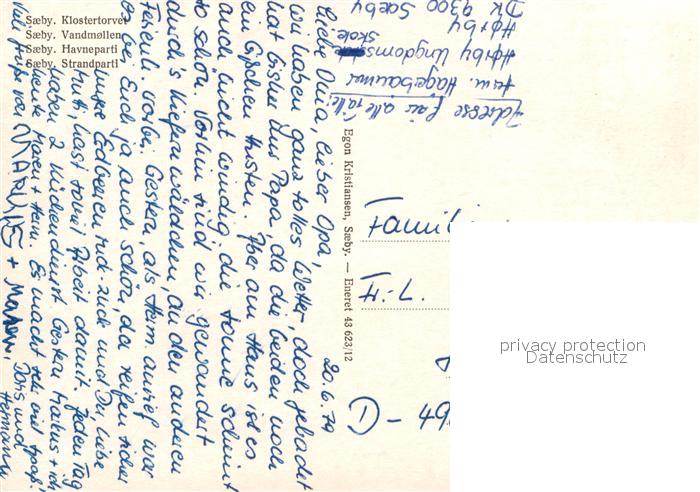 Sæby. Klostertorvet
Sæby. Vandmøllen
Sæby. Havneparti
Sæby. Strandparti
20.6.79
Liebe Oma, lieber Opa,
wir haben ganz tolles Wetter, doch gebadet
hat bisher Papa, da die beiden noch
ein bißchen husten. Hier am Haus ist es
auch nicht windig, die Sonne scheint
so schön. Vorhin sind wir gewandert
durch's Kiefernwäldchen, an den anderen
Ferienh. vorbei. Gestern, als Heim anrief war
es bei Euch ja auch schön, da reifen sicher
unsere Erdbeeren ruck-zuck und Du, liebe
Mutti, hast somit Arbeit damit. Jeden Tag
haben 2 Küchendienst. Gestern Markus + ich
heute Maren + Heim. Es macht viel Spaß.
Viel Grüße von MARKUS + Maren,
Doris und
Hermann
Adresse für alle Fälle:
Fam. Hagebaumer
Hørby Ungdomsskole
Hørby
DK 9300 Saeby
Egon Kristiansen, Sæby. — Eneret 43 623/12
Famil
D -
privacy protection
Datenschutz